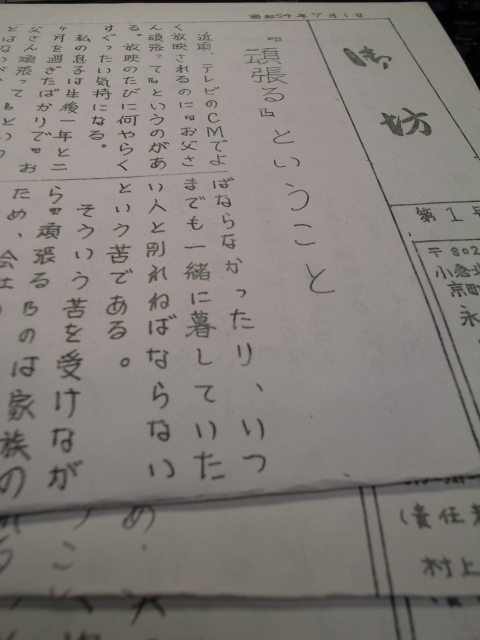 昭和59年7月1日
御坊
第1号
〒802
小倉北
京町
永
『頑張る』ということ
近頃、テレビのCMでよ
く放映されるのに『お父さ
ん頑張って』というのがあ
る。放映のたびに何やらく
すぐったい気持になる。
私の息子は生後一年と二
ヶ月を過ぎたばかりで『お
父さん頑張って』という
とはない
ばならなかったり、いつ
までも一緒に暮していた
い人と別れねばならない
という苦である。
そういう苦を受けなが
ら『頑張る』のは家族の
ため、会社
(責任者
村上